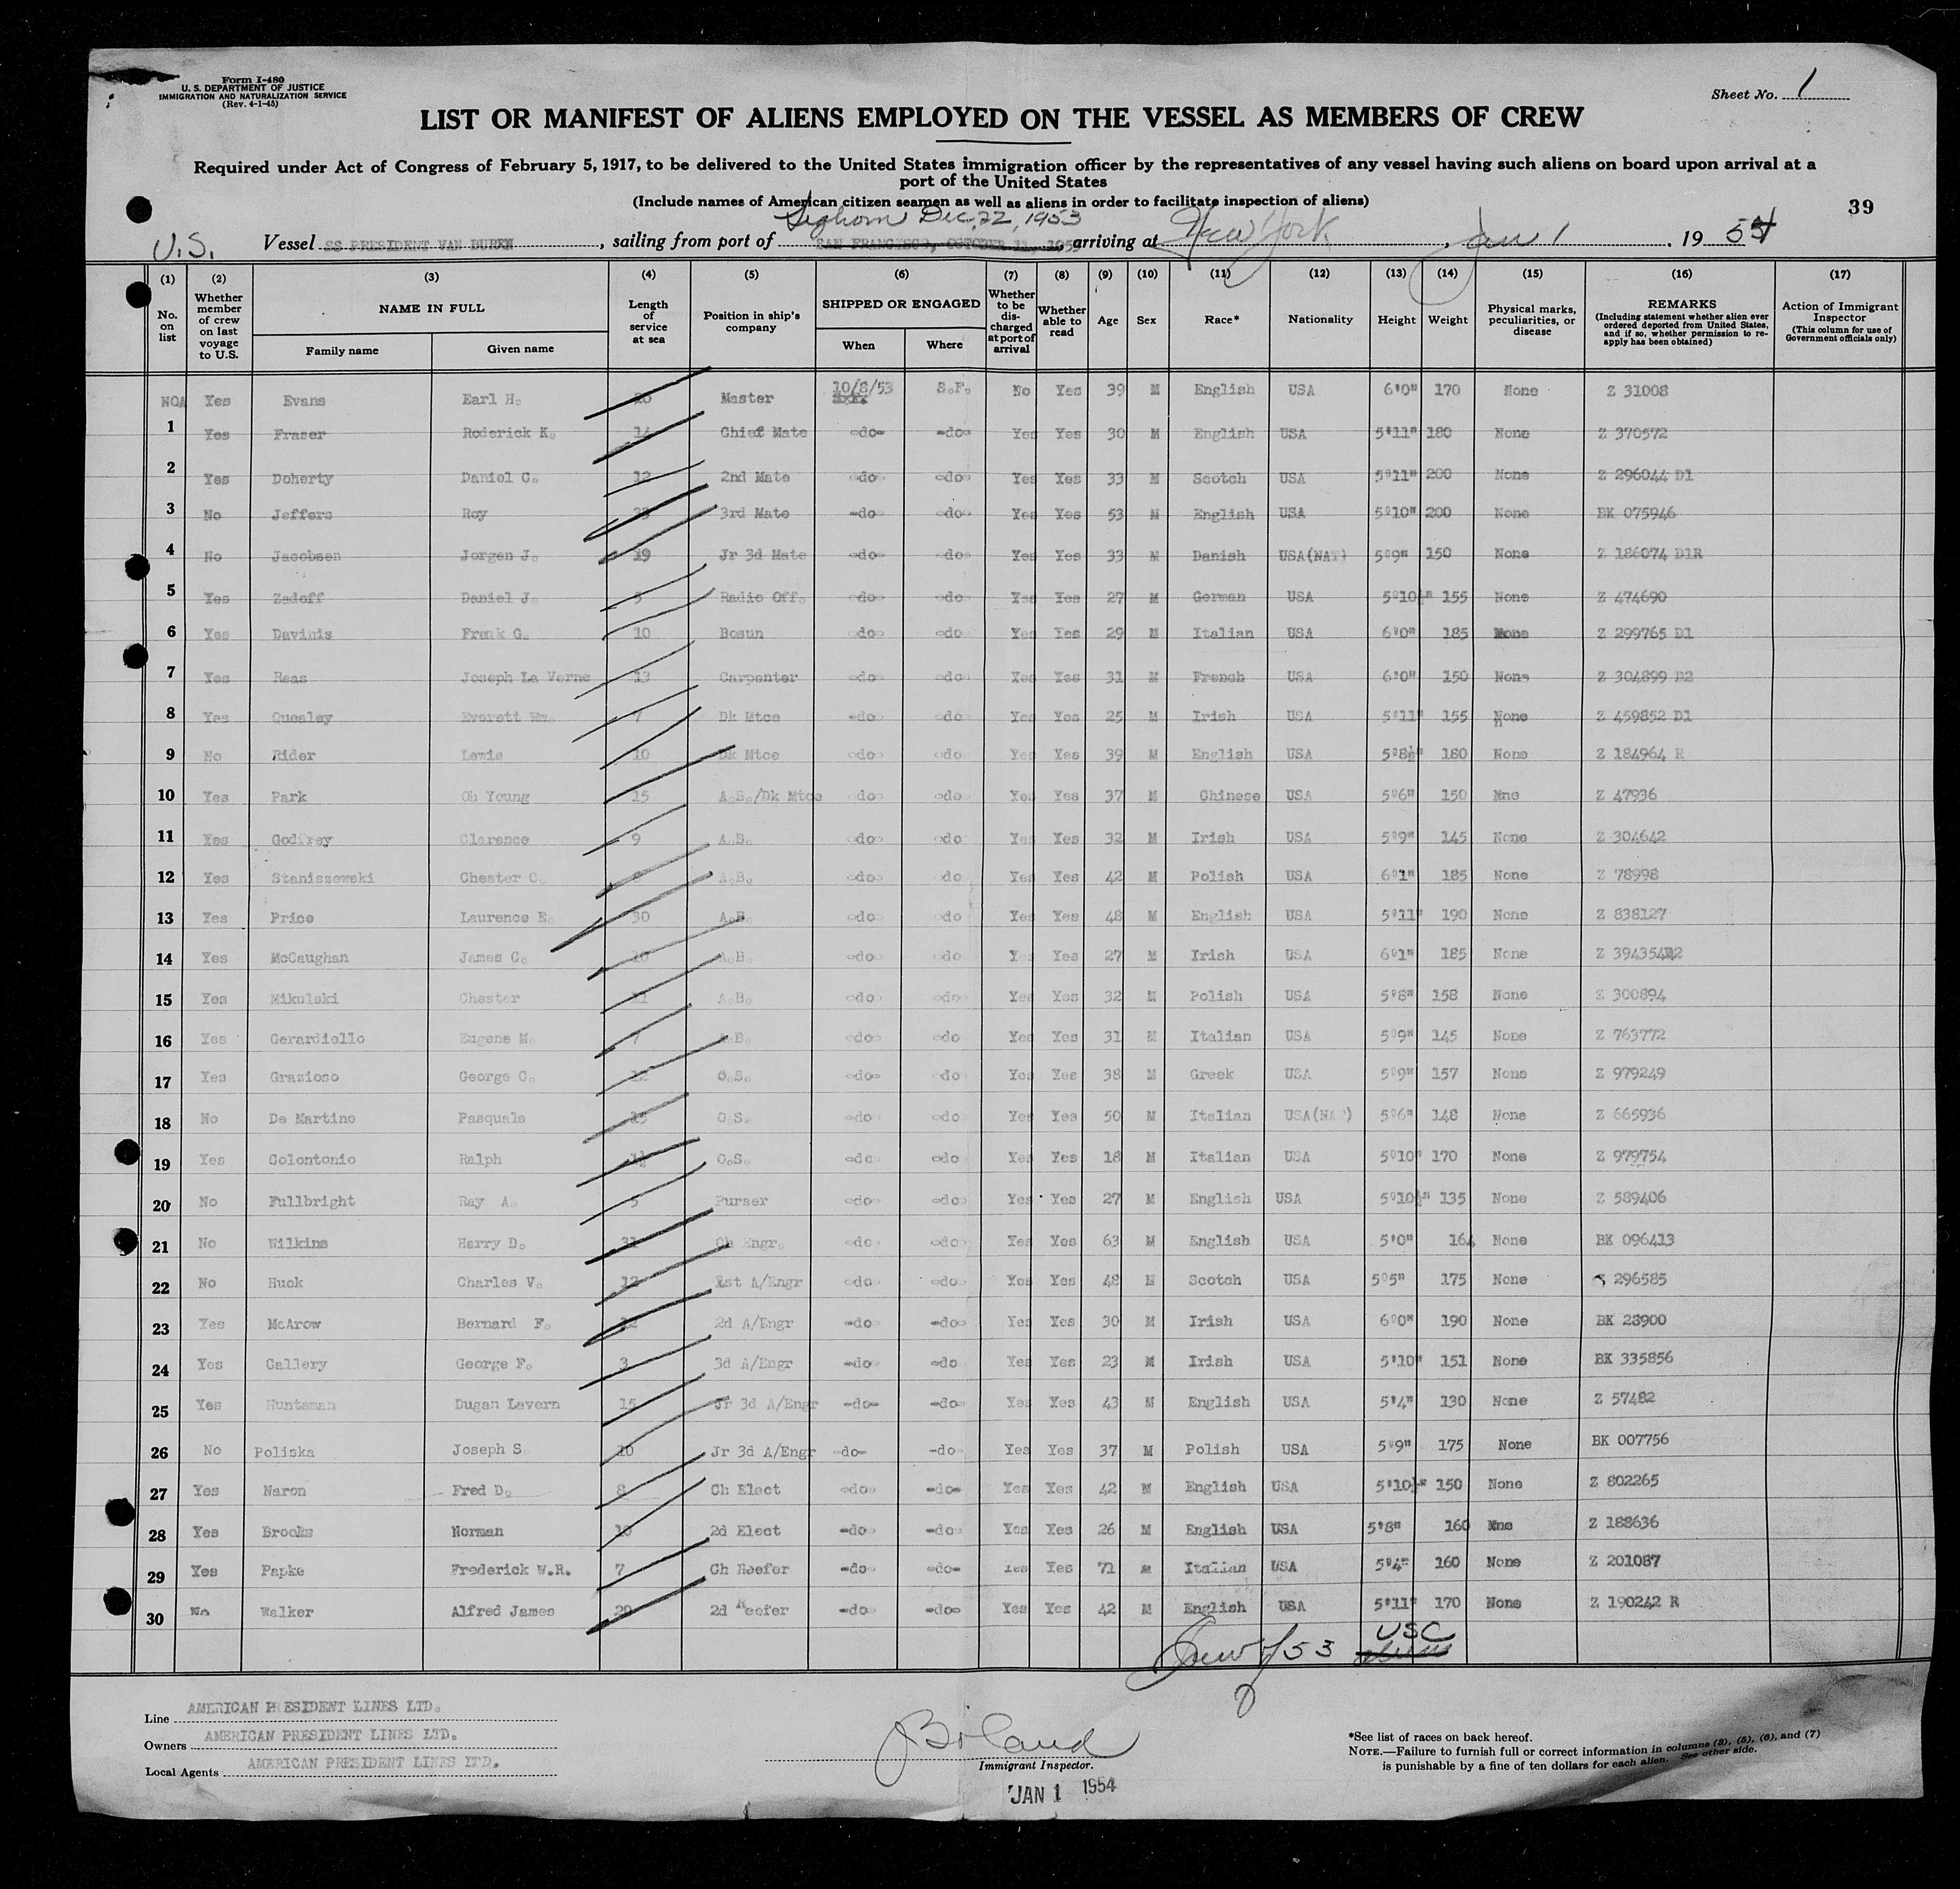 Form I-480
U. S. DEPARTMENT OF JUSTICE
IMMIGRATION AND NATURALIZATION SERVICE
(Rev. 4-1-45)
Sheet No. 1
LIST OR MANIFEST OF ALIENS EMPLOYED ON THE VESSEL AS MEMBERS OF CREW
Required under Act of Congress of February 5, 1917, to be delivered to the United States immigration officer by the representatives of any vessel having such aliens on board upon arrival at a
port of the United States
(Include names of American citizen seamen as well as aliens in order to facilitate inspection of aliens)
39
Leghorn Dec. 22, 1953
U.S. Vessel SS PRESIDENT VAN BUREN, sailing from port of SAN FRANCISCO, OCTOBER 11, 195 arriving at New York, Jan 1, 1954
(1) (2) (3) (4) (5) (6) (7) (8) (9) (10) (11) (12) (13) (14) (15) (16) (17)
No. on list
Whether member of crew on last voyage to U.S.
NAME IN FULL
Family name
Given name
Length of service at sea
Position in ship's company
SHIPPED OR ENGAGED
When
Where
Whether to be discharged at port of arrival
Whether able to read
Age
Sex
Race*
Nationality
Height
Weight
Physical marks, peculiarities, or disease
REMARKS
(Including statement whether alien ever ordered deported from United States, and if so, whether permission to reapply has been obtained)
Action of Immigrant Inspector
(This column for use of Government officials only)
NOA Yes Evans Earl H. Master 10/8/53 S.F. No Yes 39 M English USA 6'0" 170 None Z 31008
1 Yes Fraser Roderick K. 14 Chief Mate -do- -do- Yes Yes 30 M English USA 5'11" 180 None Z 370572
2 Yes Doherty Daniel C. 12 2nd Mate -do- -do- Yes Yes 33 M Scotch USA 5'11" 200 None Z 296044 D1
3 No Jeffers Roy 3rd Mate -do- -do- Yes Yes 53 M English USA 5'10" 200 None BK 075946
4 No Jacobsen Jorgen J. 19 Jr 3d Mate -do- -do- Yes Yes 33 M Danish USA(NAT) 5'9" 150 None Z 186074 D1R
5 Yes Zadoff Daniel J. 5 Radio Off. -do- -do- Yes Yes 27 M German USA 5'10½" 155 None Z 474690
6 Yes Davinis Frank G. 10 Bosun -do- -do- Yes Yes 29 M Italian USA 6'0" 185 None Z 299765 D1
7 Yes Reas Joseph La Verne 13 Carpenter -do- -do- Yes Yes 31 M French USA 6'0" 150 None Z 304899 D2
8 Yes Quealey Everett Wm. 7 Dk Mtce -do- -do- Yes Yes 25 M Irish USA 5'11" 155 None Z 459852 D1
9 No Rider Lewis 10 Dk Mtce -do- -do- Yes Yes 39 M English USA 5'8½" 180 None Z 184964 R
10 Yes Park Oh Young 15 A.B./Dk Mtce -do- -do- Yes Yes 37 M Chinese USA 5'6" 150 Nne Z 47936
11 Yes Godfrey Clarence 9 A.B. -do- -do- Yes Yes 32 M Irish USA 5'9" 145 None Z 304642
12 Yes Staniszewski Chester C. A.B. -do- -do- Yes Yes 42 M Polish USA 6'1" 185 None Z 78998
13 Yes Price Laurence E. 30 A.B. -do- -do- Yes Yes 48 M English USA 5'11" 190 None Z 838127
14 Yes McCaughan James C. 10 A.B. -do- -do- Yes Yes 27 M Irish USA 6'1" 185 None Z 394354D2
15 Yes Mikulski Chester 11 A.B. -do- -do- Yes Yes 32 M Polish USA 5'8" 158 None Z 300894
16 Yes Gerardiello Eugene M. 7 A.B. -do- -do- Yes Yes 31 M Italian USA 5'9" 145 None Z 763772
17 Yes Grazioso George C. 12 O.S. -do- -do- Yes Yes 38 M Greek USA 5'9" 157 None Z 979249
18 No De Martino Pasquale 15 O.S. -do- -do- Yes Yes 50 M Italian USA(NAT) 5'6" 148 None Z 665936
19 Yes Colontonio Ralph O.S. -do- -do- Yes Yes 18 M Italian USA 5'10" 170 None Z 979754
20 No Fullbright Ray A. 5 Purser -do- -do- Yes Yes 27 M English USA 5'10½" 135 None Z 589406
21 No Wilkins Harry D. 31 Ch Engr. -do- -do- Yes Yes 63 M English USA 5'0" 164 None BK 096413
22 No Huck Charles V. 12 1st A/Engr -do- -do- Yes Yes 48 M Scotch USA 5'5" 175 None 296585
23 Yes McArow Bernard F. 12 2d A/Engr -do- -do- Yes Yes 30 M Irish USA 6'0" 190 None BK 28900
24 Yes Callery George F. 3 3d A/Engr -do- -do- Yes Yes 23 M Irish USA 5'10" 151 None BK 335856
25 Yes Huntsman Dugan Lavern 15 Jr 3d A/Engr -do- -do- Yes Yes 43 M English USA 5'4" 130 None Z 57482
26 No Poliska Joseph S 10 Jr 3d A/Engr -do- -do- Yes Yes 37 M Polish USA 5'9" 175 None BK 007756
27 Yes Naron Fred D. 8 Ch Elect -do- -do- Yes Yes 42 M English USA 5'10½" 150 None Z 802265
28 Yes Brooks Norman 10 2d Elect -do- -do- Yes Yes 26 M English USA 5'8" 160 Nne Z 188636
29 Yes Papke Frederick W.R. 7 Ch Reefer -do- -do- Yes Yes 71 M Italian USA 5'4" 160 None Z 201087
30 No Walker Alfred James 20 2d Reefer -do- -do- Yes Yes 42 M English USA 5'11" 170 None Z 190242 R
53 USC
Line AMERICAN PRESIDENT LINES LTD.
Owners AMERICAN PRESIDENT LINES LTD.
Local Agents AMERICAN PRESIDENT LINES LTD.
Boland
Immigrant Inspector.
JAN 1 1954
*See list of races on back hereof.
NOTE.—Failure to furnish full or correct information in columns (3), (5), (6), and (7)
is punishable by a fine of ten dollars for each alien. See other side.